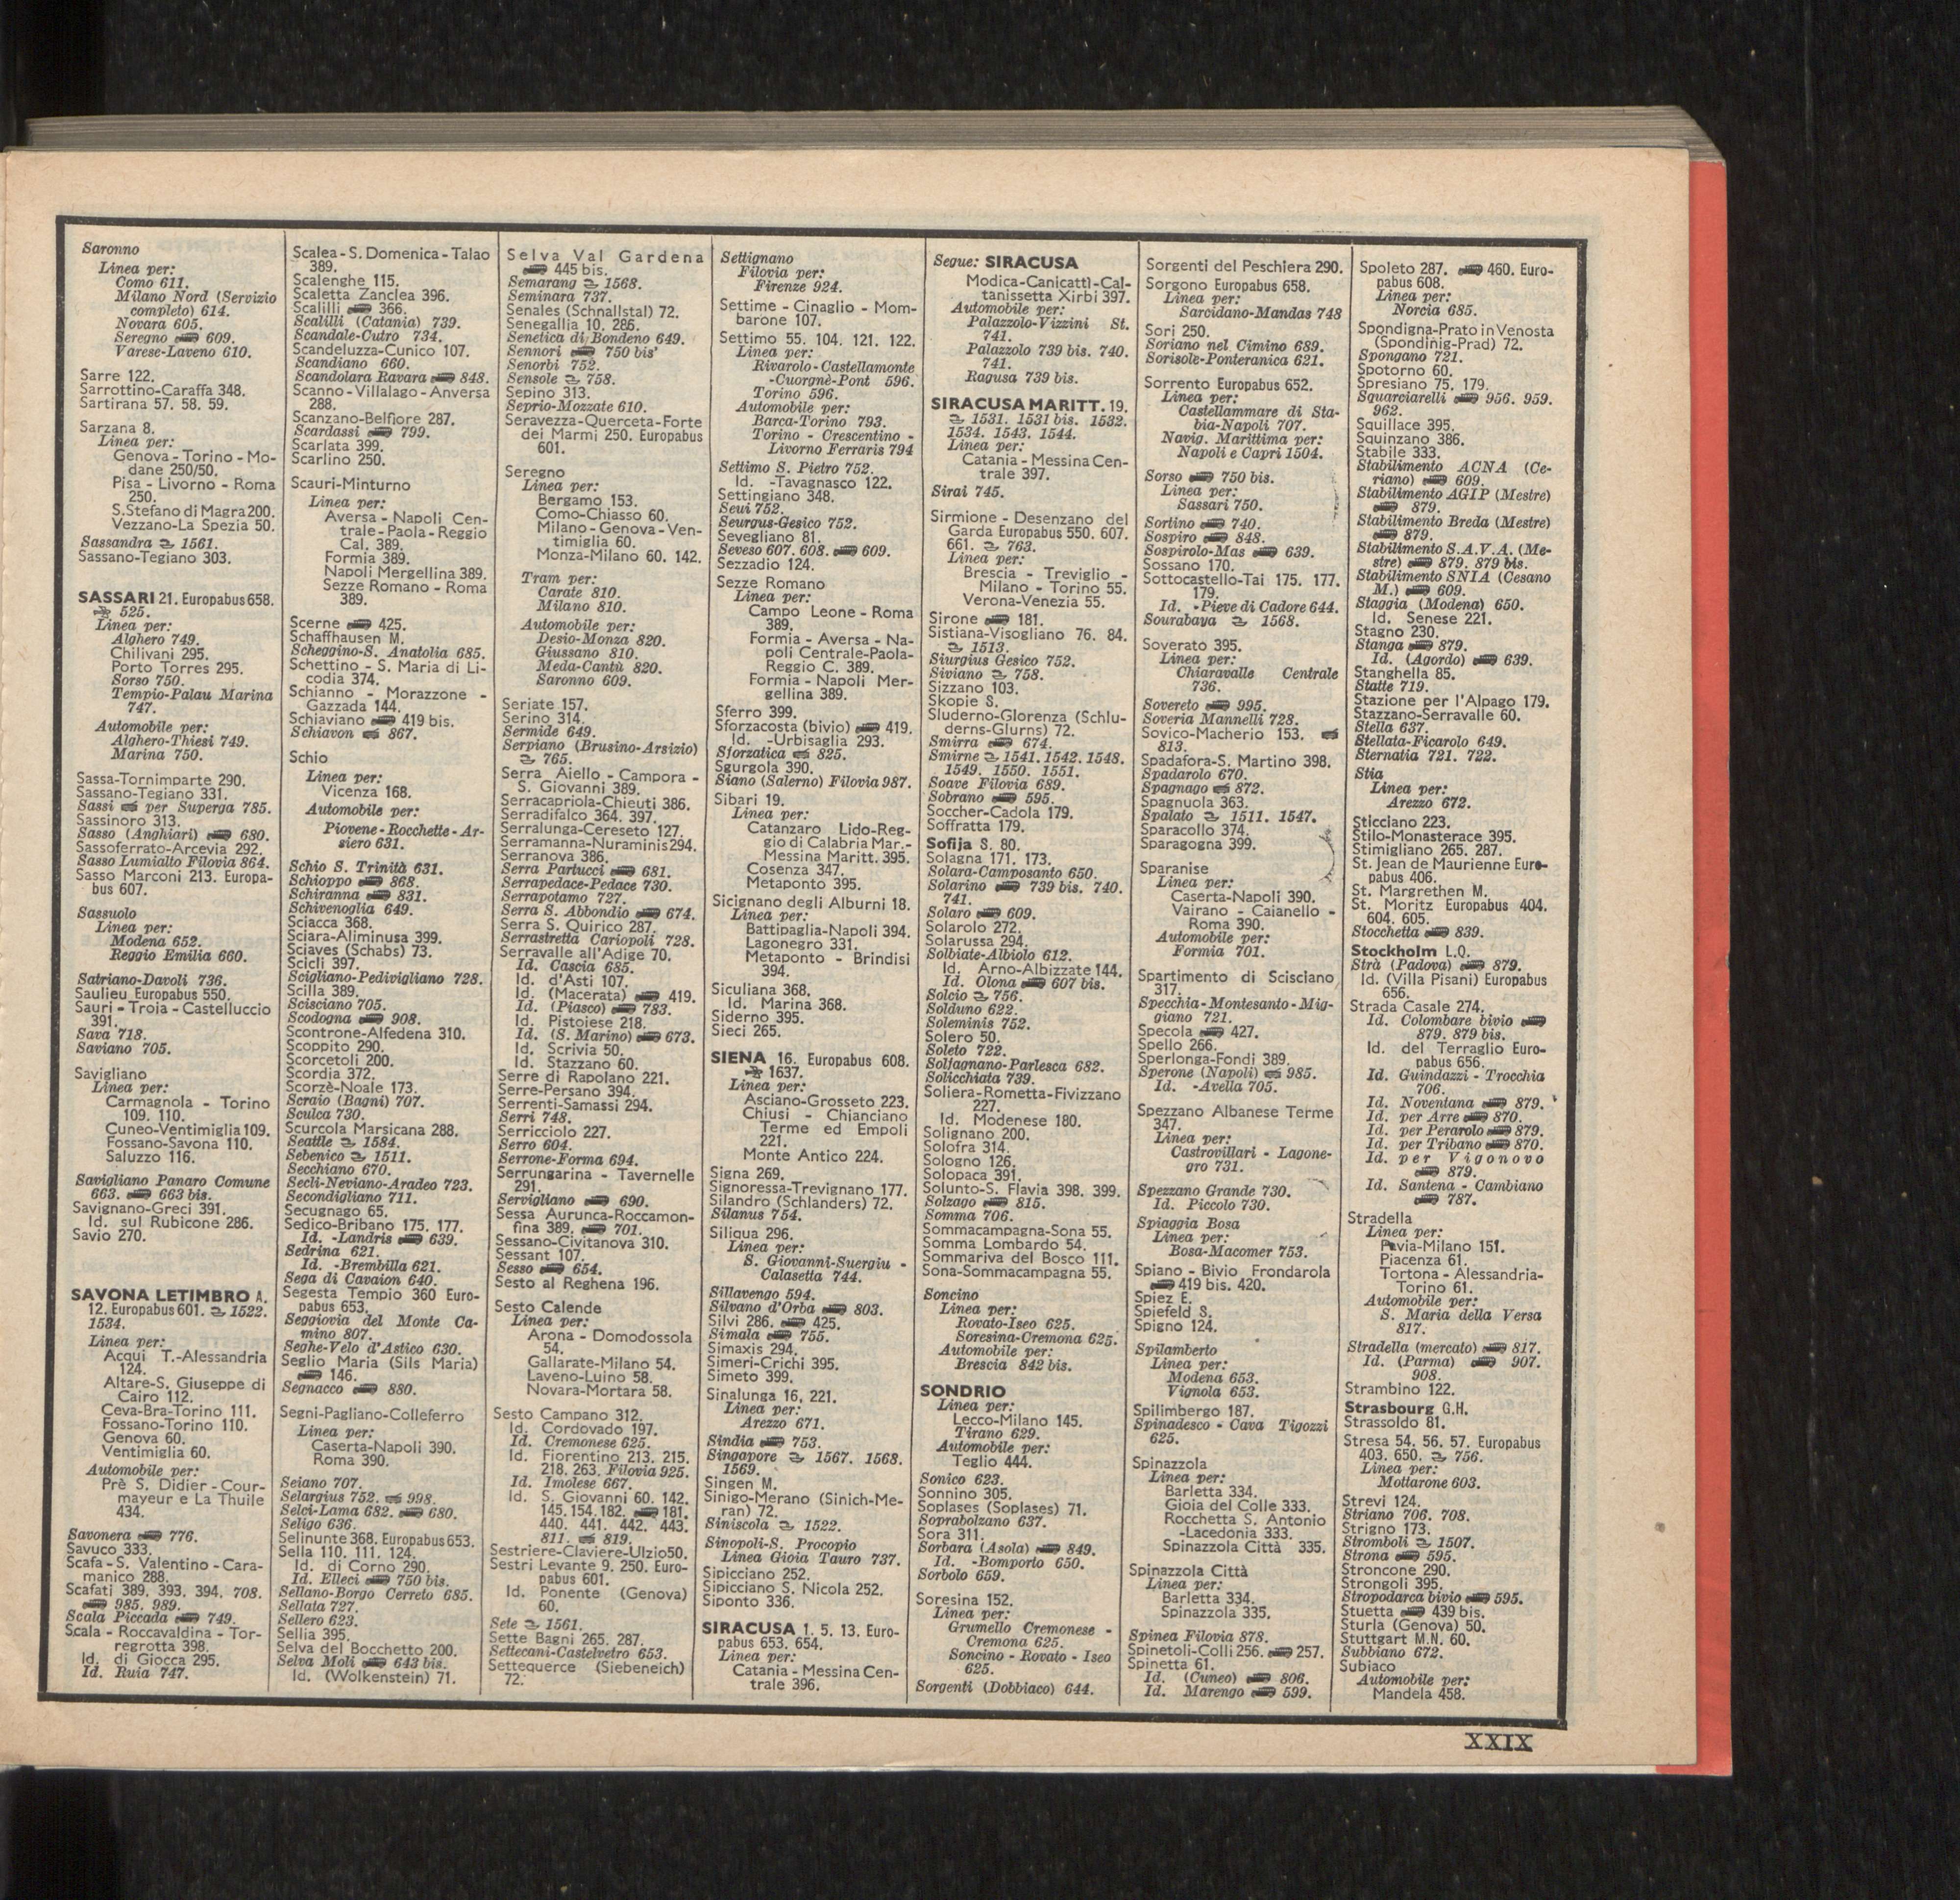 Saronno
Linea per:
Como 611.
Milano Nord (Servizio
completo) 614.
Novara 605.
Seregno 609.
Varese-Laveno 610.
Sarre 122.
Sarrottino-Caraffa 348.
Sartirana 57. 58. 59.
Sarzana 8.
Linea per:
Genova - Torino - Mo-
dane 250/50.
Pisa - Livorno - Roma
250.
S. Stefano di Magra 200.
Vezzano-La Spezia 50.
Sassandra 1561.
Sassano-Tegiano 303.
SASSARI 21. Europabus 658.
525.
Linea per:
Alghero 749.
Chilivani 295.
Porto Torres 295.
Sorso 750.
Tempio-Palau Marina
747.
Automobile per:
Alghero-Thiesi 749.
Marina 750.
Sassa-Tornimparte 290.
Sassano-Tegiano 331.
Sassi per Superga 785.
Sassinoro 313.
Sasso (Anghiari) 680.
Sassoferrato-Arcevia 292.
Sasso Lumialto Filovia 864.
Sasso Marconi 213. Europa-
bus 607.
Sassuolo
Linea per:
Modena 652.
Reggio Emilia 660.
Satriano-Davoli 736.
Saulieu Europabus 550.
Sauri - Troia - Castelluccio
391.
Sava 718.
Saviano 705.
Savigliano
Linea per:
Carmagnola - Torino
109. 110.
Cuneo-Ventimiglia 109.
Fossano-Savona 110.
Saluzzo 116.
Savigliano Panaro Comune
663. 663 bis.
Savignano-Greci 391.
Id. sul Rubicone 286.
Savio 270.
SAVONA LETIMBRO A.
12. Europabus 601. 1522.
1534.
Linea per:
Acqui T.-Alessandria
124.
Altare-S. Giuseppe di
Cairo 112.
Ceva-Bra-Torino 111.
Fossano-Torino 110.
Genova 60.
Ventimiglia 60.
Automobile per:
Prè S. Didier - Cour-
mayeur e La Thuile
434.
Savonera 776.
Savuco 333.
Scafa - S. Valentino - Cara-
manico 288.
Scafati 389. 393. 394. 708.
985. 989.
Scala Piccada 749.
Scala - Roccavaldina - Tor-
regrotta 398.
Id. di Giocca 295.
Id. Ruia 747.
Scalea - S. Domenica - Talao
389.
Scalenghe 115.
Scaletta Zanclea 396.
Scalilli 366.
Scalilli (Catania) 739.
Scandale-Cutro 734.
Scandeluzza-Cunico 107.
Scandiano 660.
Scandolara Ravara 848.
Scanno - Villalago - Anversa
288.
Scanzano-Belfiore 287.
Scardassi 799.
Scarlata 399.
Scarlino 250.
Scauri-Minturno
Linea per:
Aversa - Napoli Cen-
trale - Paola - Reggio
Cal. 389.
Formia 389.
Napoli Mergellina 389.
Sezze Romano - Roma
389.
Scerne 425.
Schaffhausen M.
Scheggino-S. Anatolia 685.
Schettino - S. Maria di Li-
codia 374.
Schianno - Morazzone -
Gazzada 144.
Schiaviano 419 bis.
Schiavon 867.
Schio
Linea per:
Vicenza 168.
Automobile per:
Piovene - Rocchette - Ar-
siero 631.
Schio S. Trinità 631.
Schioppo 868.
Schiranna 831.
Schivenoglia 649.
Sciacca 368.
Sciara-Aliminusa 399.
Sciaves (Schabs) 73.
Scicli 397.
Scigliano-Pedivigliano 728.
Scilla 389.
Scisciano 705.
Scodogna 908.
Scontrone-Alfedena 310.
Scoppito 290.
Scorcetoli 200.
Scordia 372.
Scorzè-Noale 173.
Scraio (Bagni) 707.
Sculca 730.
Scurcola Marsicana 288.
Seattle 1584.
Sebenico 1511.
Secchiano 670.
Secli-Neviano-Aradeo 723.
Secondigliano 711.
Secugnago 65.
Sedico-Bribano 175. 177.
Id. -Landris 639.
Sedrina 621.
Id. -Brembilla 621.
Sega di Cavaion 640.
Segesta Tempio 360 Euro-
pabus 653.
Seggiovia del Monte Ca-
mino 807.
Seghe-Velo d'Astico 630.
Seglio Maria (Sils Maria)
146.
Segnacco 880.
Segni-Pagliano-Colleferro
Linea per:
Caserta-Napoli 390.
Roma 390.
Seiano 707.
Selargius 752. 998.
Selci-Lama 682. 680.
Seligo 636.
Selinunte 368. Europabus 653.
Sella 110. 111. 124.
Id. di Corno 290.
Id. Elleci 750 bis.
Sellano-Borgo Cerreto 685.
Sellata 727.
Sellero 623.
Sellia 395.
Selva del Bocchetto 200.
Selva Moli 643 bis.
Id. (Wolkenstein) 71.
Selva Val Gardena
445 bis.
Semarang 1568.
Seminara 737.
Senales (Schnallstal) 72.
Senegallia 10. 286.
Senetica di Bondeno 649.
Sennori 750 bis
Senorbi 752.
Sensole 758.
Sepino 313.
Seprio-Mozzate 610.
Seravezza-Querceta-Forte
dei Marmi 250. Europabus
601.
Seregno
Linea per:
Bergamo 153.
Como-Chiasso 60.
Milano - Genova - Ven-
timiglia 60.
Monza-Milano 60. 142.
Tram per:
Carate 810.
Milano 810.
Automobile per:
Desio-Monza 820.
Giussano 810.
Meda-Cantù 820.
Saronno 609.
Seriate 157.
Serino 314.
Sermide 649.
Serpiano (Brusino-Arsizio)
765.
Serra Aiello - Campora -
S. Giovanni 389.
Serracapriola-Chieuti 386.
Serradifalco 364. 397.
Serralunga-Cereseto 127.
Serramanna-Nuraminis 294.
Serranova 386.
Serra Partucci 681.
Serrapedace-Pedace 730.
Serrapotamo 727.
Serra S. Abbondio 674.
Serra S. Quirico 287.
Serrastretta Cariopoli 728.
Serravalle all'Adige 70.
Id. Cascia 685.
Id. d'Asti 107.
Id. (Macerata) 419.
Id. (Piasco) 783.
Id. Pistoiese 218.
Id. (S. Marino) 673.
Id. Scrivia 50.
Id. Stazzano 60.
Serre di Rapolano 221.
Serre-Persano 394.
Serrenti-Samassi 294.
Serri 748.
Serricciolo 227.
Serro 604.
Serrone-Forma 694.
Serrungarina - Tavernelle
291.
Servigliano 690.
Sessa Aurunca-Roccamon-
fina 389. 701.
Sessano-Civitanova 310.
Sessant 107.
Sesso 654.
Sesto al Reghena 196.
Sesto Calende
Linea per:
Arona - Domodossola
54.
Gallarate-Milano 54.
Laveno-Luino 58.
Novara-Mortara 58.
Sesto Campano 312.
Id. Cordovado 197.
Id. Cremonese 625.
Id. Fiorentino 213. 215.
218. 263. Filovia 925.
Id. Imolese 667.
Id. S. Giovanni 60. 142.
145. 154. 182. 181.
440. 441. 442. 443.
811. 819.
Sestriere-Claviere-Ulzio 50.
Sestri Levante 9. 250. Euro-
pabus 601.
Id. Ponente (Genova)
60.
Sete 1561.
Sette Bagni 265. 287.
Settecani-Castelvetro 653.
Settequerce (Siebeneich)
72.
Settignano
Filovia per:
Firenze 924.
Settime - Cinaglio - Mom-
barone 107.
Settimo 55. 104. 121. 122.
Linea per:
Rivarolo-Castellamonte
-Cuorgnè-Pont 596.
Torino 596.
Automobile per:
Barca-Torino 793.
Torino - Crescentino -
Livorno Ferraris 794
Settimo S. Pietro 752.
Id. -Tavagnasco 122.
Settingiano 348.
Seui 752.
Seurgus-Gesico 752.
Sevegliano 81.
Seveso 607. 608. 609.
Sezzadio 124.
Sezze Romano
Linea per:
Campo Leone - Roma
389.
Formia - Aversa - Na-
poli Centrale-Paola-
Reggio C. 389.
Formia - Napoli Mer-
gellina 389.
Sferro 399.
Sforzacosta (bivio) 419.
Id. -Urbisaglia 293.
Sforzatica 825.
Sgurgola 390.
Siano (Salerno) Filovia 987.
Sibari 19.
Linea per:
Catanzaro Lido-Reg-
gio di Calabria Mar.-
Messina Maritt. 395.
Cosenza 347.
Metaponto 395.
Sicignano degli Alburni 18.
Linea per:
Battipaglia-Napoli 394.
Lagonegro 331.
Metaponto - Brindisi
394.
Siculiana 368.
Id. Marina 368.
Siderno 395.
Sieci 265.
SIENA 16. Europabus 608.
1637.
Linea per:
Asciano-Grosseto 223.
Chiusi - Chianciano
Terme ed Empoli
221.
Monte Antico 224.
Signa 269.
Signoressa-Trevignano 177.
Silandro (Schlanders) 72.
Silanus 754.
Siliqua 296.
Linea per:
S. Giovanni-Suergiu -
Calasetta 744.
Sillavengo 594.
Silvano d'Orba 803.
Silvi 286. 425.
Simala 755.
Simaxis 294.
Simeri-Crichi 395.
Simeto 399.
Sinalunga 16. 221.
Linea per:
Arezzo 671.
Sindia 753.
Singapore 1567. 1568.
1569.
Singen M.
Sinigo-Merano (Sinich-Me-
ran) 72.
Siniscola 1522.
Sinopoli-S. Procopio
Linea Gioia Tauro 737.
Sipicciano 252.
Sipicciano S. Nicola 252.
Siponto 336.
SIRACUSA 1. 5. 13. Euro-
pabus 653. 654.
Linea per:
Catania - Messina Cen-
trale 396.
Segue: SIRACUSA
Modica-Canicattì-Cal-
tanissetta Xirbi 397.
Automobile per:
Palazzolo-Vizzini St.
741.
Palazzolo 739 bis. 740.
741.
Ragusa 739 bis.
SIRACUSA MARITT. 19.
1531. 1531 bis. 1532.
1534. 1543. 1544.
Linea per:
Catania - Messina Cen-
trale 397.
Sirai 745.
Sirmione - Desenzano del
Garda Europabus 550. 607.
661. 763.
Linea per:
Brescia - Treviglio -
Milano - Torino 55.
Verona-Venezia 55.
Sirone 181.
Sistiana-Visogliano 76. 84.
1513.
Siurgius Gesico 752.
Siviano 758.
Sizzano 103.
Skopie S.
Sluderno-Glorenza (Schlu-
derns-Glurns) 72.
Smirra 674.
Smirne 1541. 1542. 1548.
1549. 1550. 1551.
Soave Filovia 689.
Sobrano 595.
Soccher-Cadola 179.
Soffratta 179.
Sofija S. 80.
Solagna 171. 173.
Solara-Camposanto 650.
Solarino 739 bis. 740.
741.
Solaro 609.
Solarolo 272.
Solarussa 294.
Solbiate-Albiolo 612.
Id. Arno-Albizzate 144.
Id. Olona 607 bis.
Solcio 756.
Solduno 622.
Soleminis 752.
Solero 50.
Soleto 722.
Solfagnano-Parlesca 682.
Solicchiata 739.
Soliera-Rometta-Fivizzano
227.
Id. Modenese 180.
Solignano 200.
Solofra 314.
Sologno 126.
Solopaca 391.
Solunto-S. Flavia 398. 399.
Solzago 815.
Somma 706.
Sommacampagna-Sona 55.
Somma Lombardo 54.
Sommariva del Bosco 111.
Sona-Sommacampagna 55.
Soncino
Linea per:
Rovato-Iseo 625.
Soresina-Cremona 625.
Automobile per:
Brescia 842 bis.
SONDRIO
Linea per:
Lecco-Milano 145.
Tirano 629.
Automobile per:
Teglio 444.
Sonico 623.
Sonnino 305.
Soplases (Soplases) 71.
Soprabolzano 637.
Sora 311.
Sorbara (Asola) 849.
Id. -Bomporto 650.
Sorbolo 659.
Soresina 152.
Linea per:
Grumello Cremonese -
Cremona 625.
Soncino - Rovato - Iseo
625.
Sorgenti (Dobbiaco) 644.
Sorgenti del Peschiera 290.
Sorgono Europabus 658.
Linea per:
Sarcidano-Mandas 748
Sori 250.
Soriano nel Cimino 689.
Sorisole-Ponteranica 621.
Sorrento Europabus 652.
Linea per:
Castellammare di Sta-
bia-Napoli 707.
Navig. Marittima per:
Napoli e Capri 1504.
Sorso 750 bis.
Linea per:
Sassari 750.
Sortino 740.
Sospiro 848.
Sospirolo-Mas 639.
Sossano 170.
Sottocastello-Tai 175. 177.
179.
Id. -Pieve di Cadore 644.
Sourabaya 1568.
Soverato 395.
Linea per:
Chiaravalle Centrale
736.
Sovereto 995.
Soveria Mannelli 728.
Sovico-Macherio 153.
813.
Spadafora-S. Martino 398.
Spadarolo 670.
Spagnago 872.
Spagnuola 363.
Spalato 1511. 1547.
Sparacollo 374.
Sparagogna 399.
Sparanise
Linea per:
Caserta-Napoli 390.
Vairano - Caianello -
Roma 390.
Automobile per:
Formia 701.
Spartimento di Scisciano
317.
Specchia - Montesanto - Mig-
giano 721.
Specola 427.
Spello 266.
Sperlonga-Fondi 389.
Sperone (Napoli) 985.
Id. -Avella 705.
Spezzano Albanese Terme
347.
Linea per:
Castrovillari - Lagone-
gro 731.
Spezzano Grande 730.
Id. Piccolo 730.
Spiaggia Bosa
Linea per:
Bosa-Macomer 753.
Spiano - Bivio Frondarola
419 bis. 420.
Spiez E.
Spiefeld S.
Spigno 124.
Spilamberto
Linea per:
Modena 653.
Vignola 653.
Spilimbergo 187.
Spinadesco - Cava Tigozzi
625.
Spinazzola
Linea per:
Barletta 334.
Gioia del Colle 333.
Rocchetta S. Antonio
-Lacedonia 333.
Spinazzola Città 335.
Spinazzola Città
Linea per:
Barletta 334.
Spinazzola 335.
Spinea Filovia 878.
Spinetoli-Colli 256. 257.
Spinetta 61.
Id. (Cuneo) 806.
Id. Marengo 599.
Spoleto 287. 460. Euro-
pabus 608.
Linea per:
Norcia 685.
Spondigna-Prato in Venosta
(Spondinig-Prad) 72.
Spongano 721.
Spotorno 60.
Spresiano 75. 179.
Squarciarelli 956. 959.
962.
Squillace 395.
Squinzano 386.
Stabile 333.
Stabilimento ACNA (Ce-
riano) 609.
Stabilimento AGIP (Mestre)
879.
Stabilimento Breda (Mestre)
879.
Stabilimento S.A.V.A. (Me-
stre) 879. 879 bis.
Stabilimento SNIA (Cesano
M.) 609.
Staggia (Modena) 650.
Id. Senese 221.
Stagno 230.
Stanga 879.
Id. (Agordo) 639.
Stanghella 85.
Statte 719.
Stazione per l'Alpago 179.
Stazzano-Serravalle 60.
Stella 637.
Stellata-Ficarolo 649.
Sternatia 721. 722.
Stia
Linea per:
Arezzo 672.
Sticciano 223.
Stilo-Monasterace 395.
Stimigliano 265. 287.
St. Jean de Maurienne Euro-
pabus 406.
St. Margrethen M.
St. Moritz Europabus 404.
604. 605.
Stocchetta 839.
Stockholm L.O.
Strà (Padova) 879.
Id. (Villa Pisani) Europabus
656.
Strada Casale 274.
Id. Colombare bivio
879. 879 bis.
Id. del Terraglio Euro-
pabus 656.
Id. Guindazzi - Trocchia
706.
Id. Noventana 879.
Id. per Arre 870.
Id. per Perarolo 879.
Id. per Tribano 870.
Id. per Vigonovo
879.
Id. Santena - Cambiano
787.
Stradella
Linea per:
Pavia-Milano 151.
Piacenza 61.
Tortona - Alessandria-
Torino 61.
Automobile per:
S. Maria della Versa
817.
Stradella (mercato) 817.
Id. (Parma) 907.
908.
Strambino 122.
Strasbourg G.H.
Strassoldo 81.
Stresa 54. 56. 57. Europabus
403. 650. 756.
Linea per:
Mottarone 603.
Strevi 124.
Striano 706. 708.
Strigno 173.
Stromboli 1507.
Strona 595.
Stroncone 290.
Strongoli 395.
Stropodarca bivio 595.
Stuetta 439 bis.
Sturla (Genova) 50.
Stuttgart M.N. 60.
Subbiano 672.
Subiaco
Automobile per:
Mandela 458.
XXIX